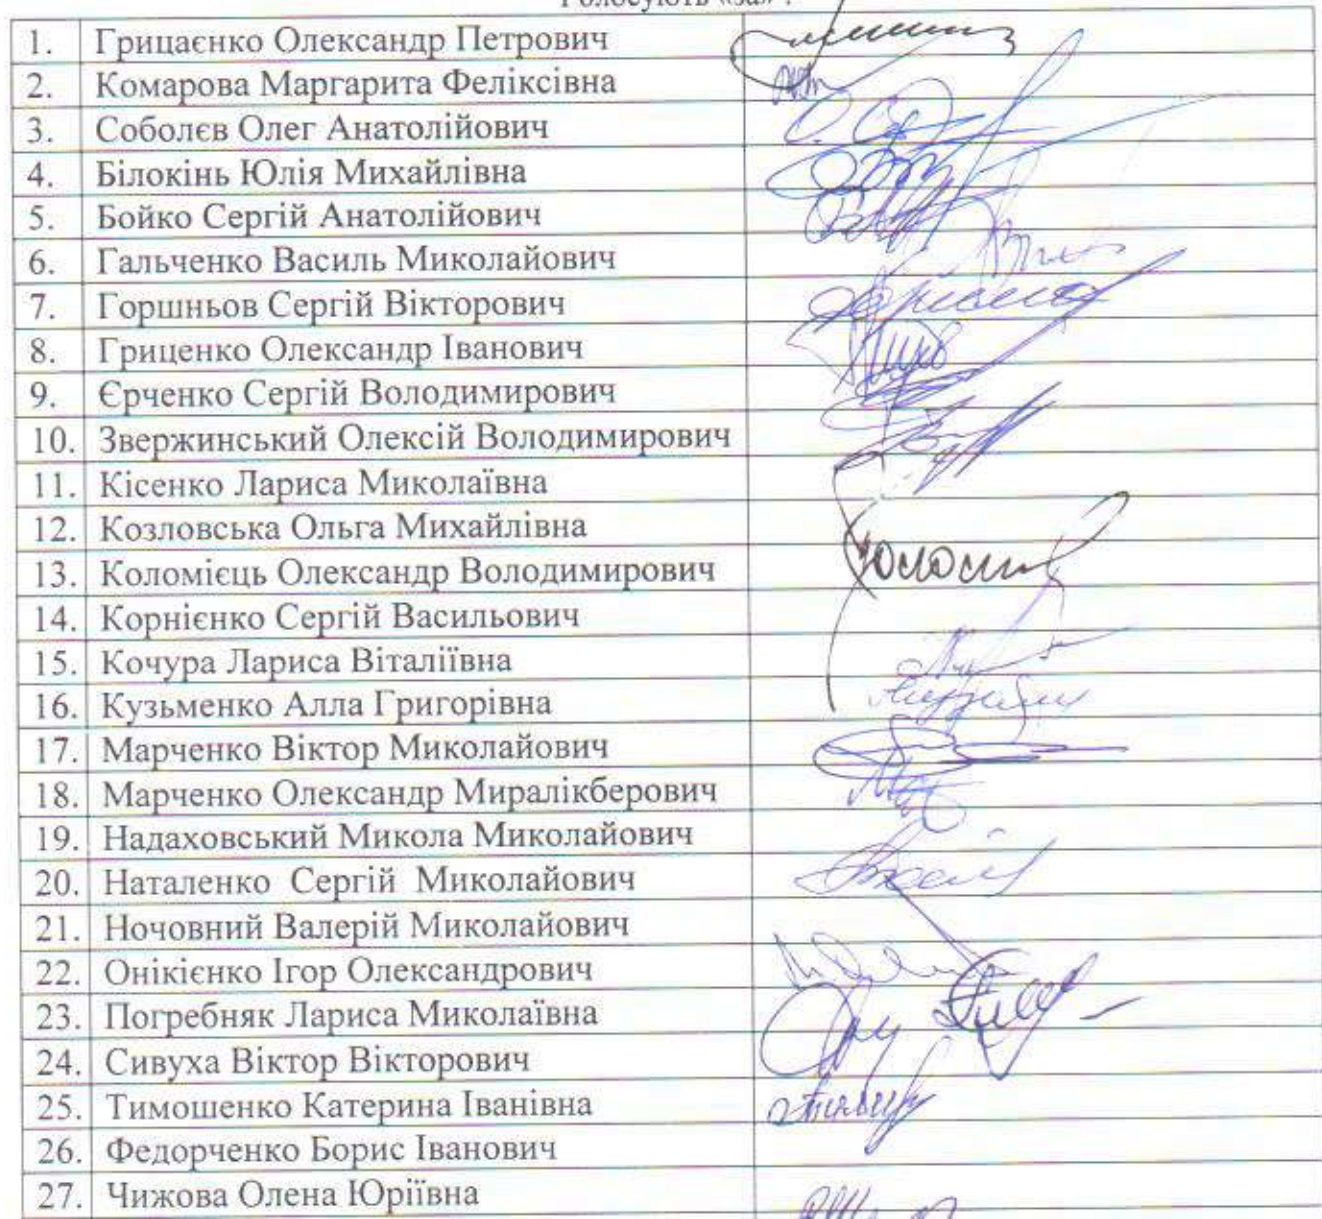 Голосують «за» :
1. Грицаєнко Олександр Петрович
2. Комарова Маргарита Феліксівна
3. Соболєв Олег Анатолійович
4. Білокінь Юлія Михайлівна
5. Бойко Сергій Анатолійович
6. Гальченко Василь Миколайович
7. Горшньов Сергій Вікторович
8. Гриценко Олександр Іванович
9. Єрченко Сергій Володимирович
10. Звержинський Олексій Володимирович
11. Кісенко Лариса Миколаївна
12. Козловська Ольга Михайлівна
13. Коломієць Олександр Володимирович
14. Корнієнко Сергій Васильович
15. Кочура Лариса Віталіївна
16. Кузьменко Алла Григорівна
17. Марченко Віктор Миколайович
18. Марченко Олександр Миралікберович
19. Надаховський Микола Миколайович
20. Наталенко Сергій Миколайович
21. Ночовний Валерій Миколайович
22. Онікієнко Ігор Олександрович
23. Погребняк Лариса Миколаївна
24. Сивуха Віктор Вікторович
25. Тимошенко Катерина Іванівна
26. Федорченко Борис Іванович
27. Чижова Олена Юріївна